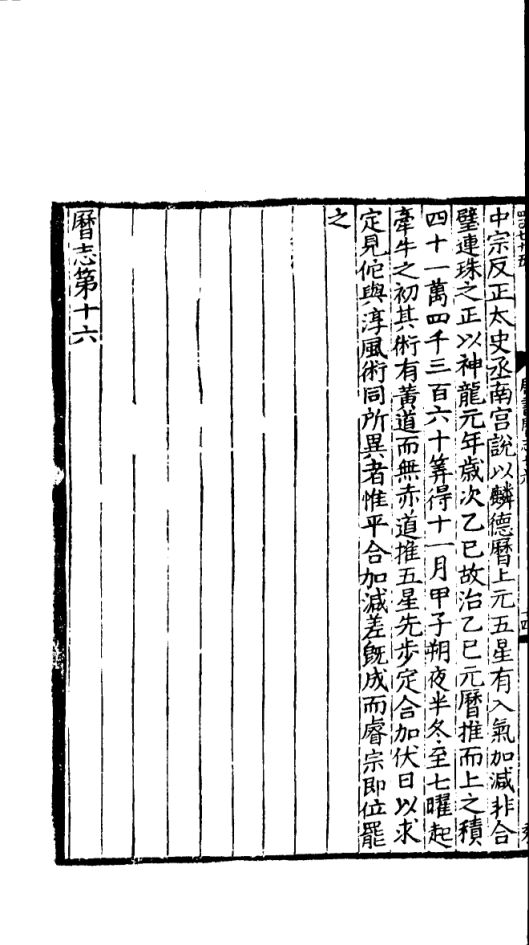 中宗反正太史丞南宮說以麟德曆上元五星有入氣加減非合
璧連珠之正以神龍元年歲次乙巳故治乙巳元曆推而上之積
四十一萬四千三百六十筭得十一月甲子朔夜半冬至七曜起
牽牛之初其術有黃道而無赤道推五星先步定合加伏日以求
定見佗與淳風術同所異者惟平合加減差旣成而睿宗即位罷
之
曆志第十六